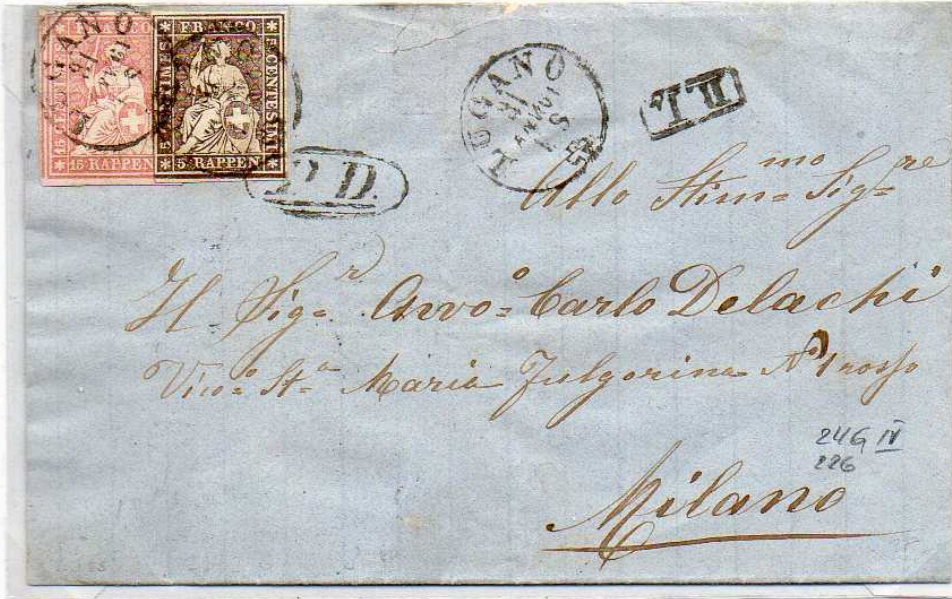 FRANCO
15 RAPPEN
FRANCO
5 CENTESIMI
5 RAPPEN
LUGANO
P.D.
LUGANO
P.D.
Allo Stim=mo Sig=re
Il Sig=r Avvo=o Carlo Delachi
Vico=o St=a Maria Fulgorina N° 1 rosso
24G IV
226
Milano